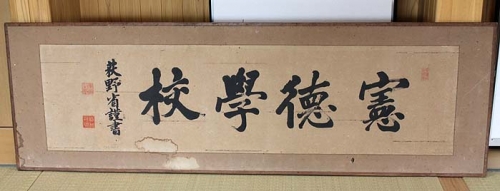 憲德學校
荻野省證書